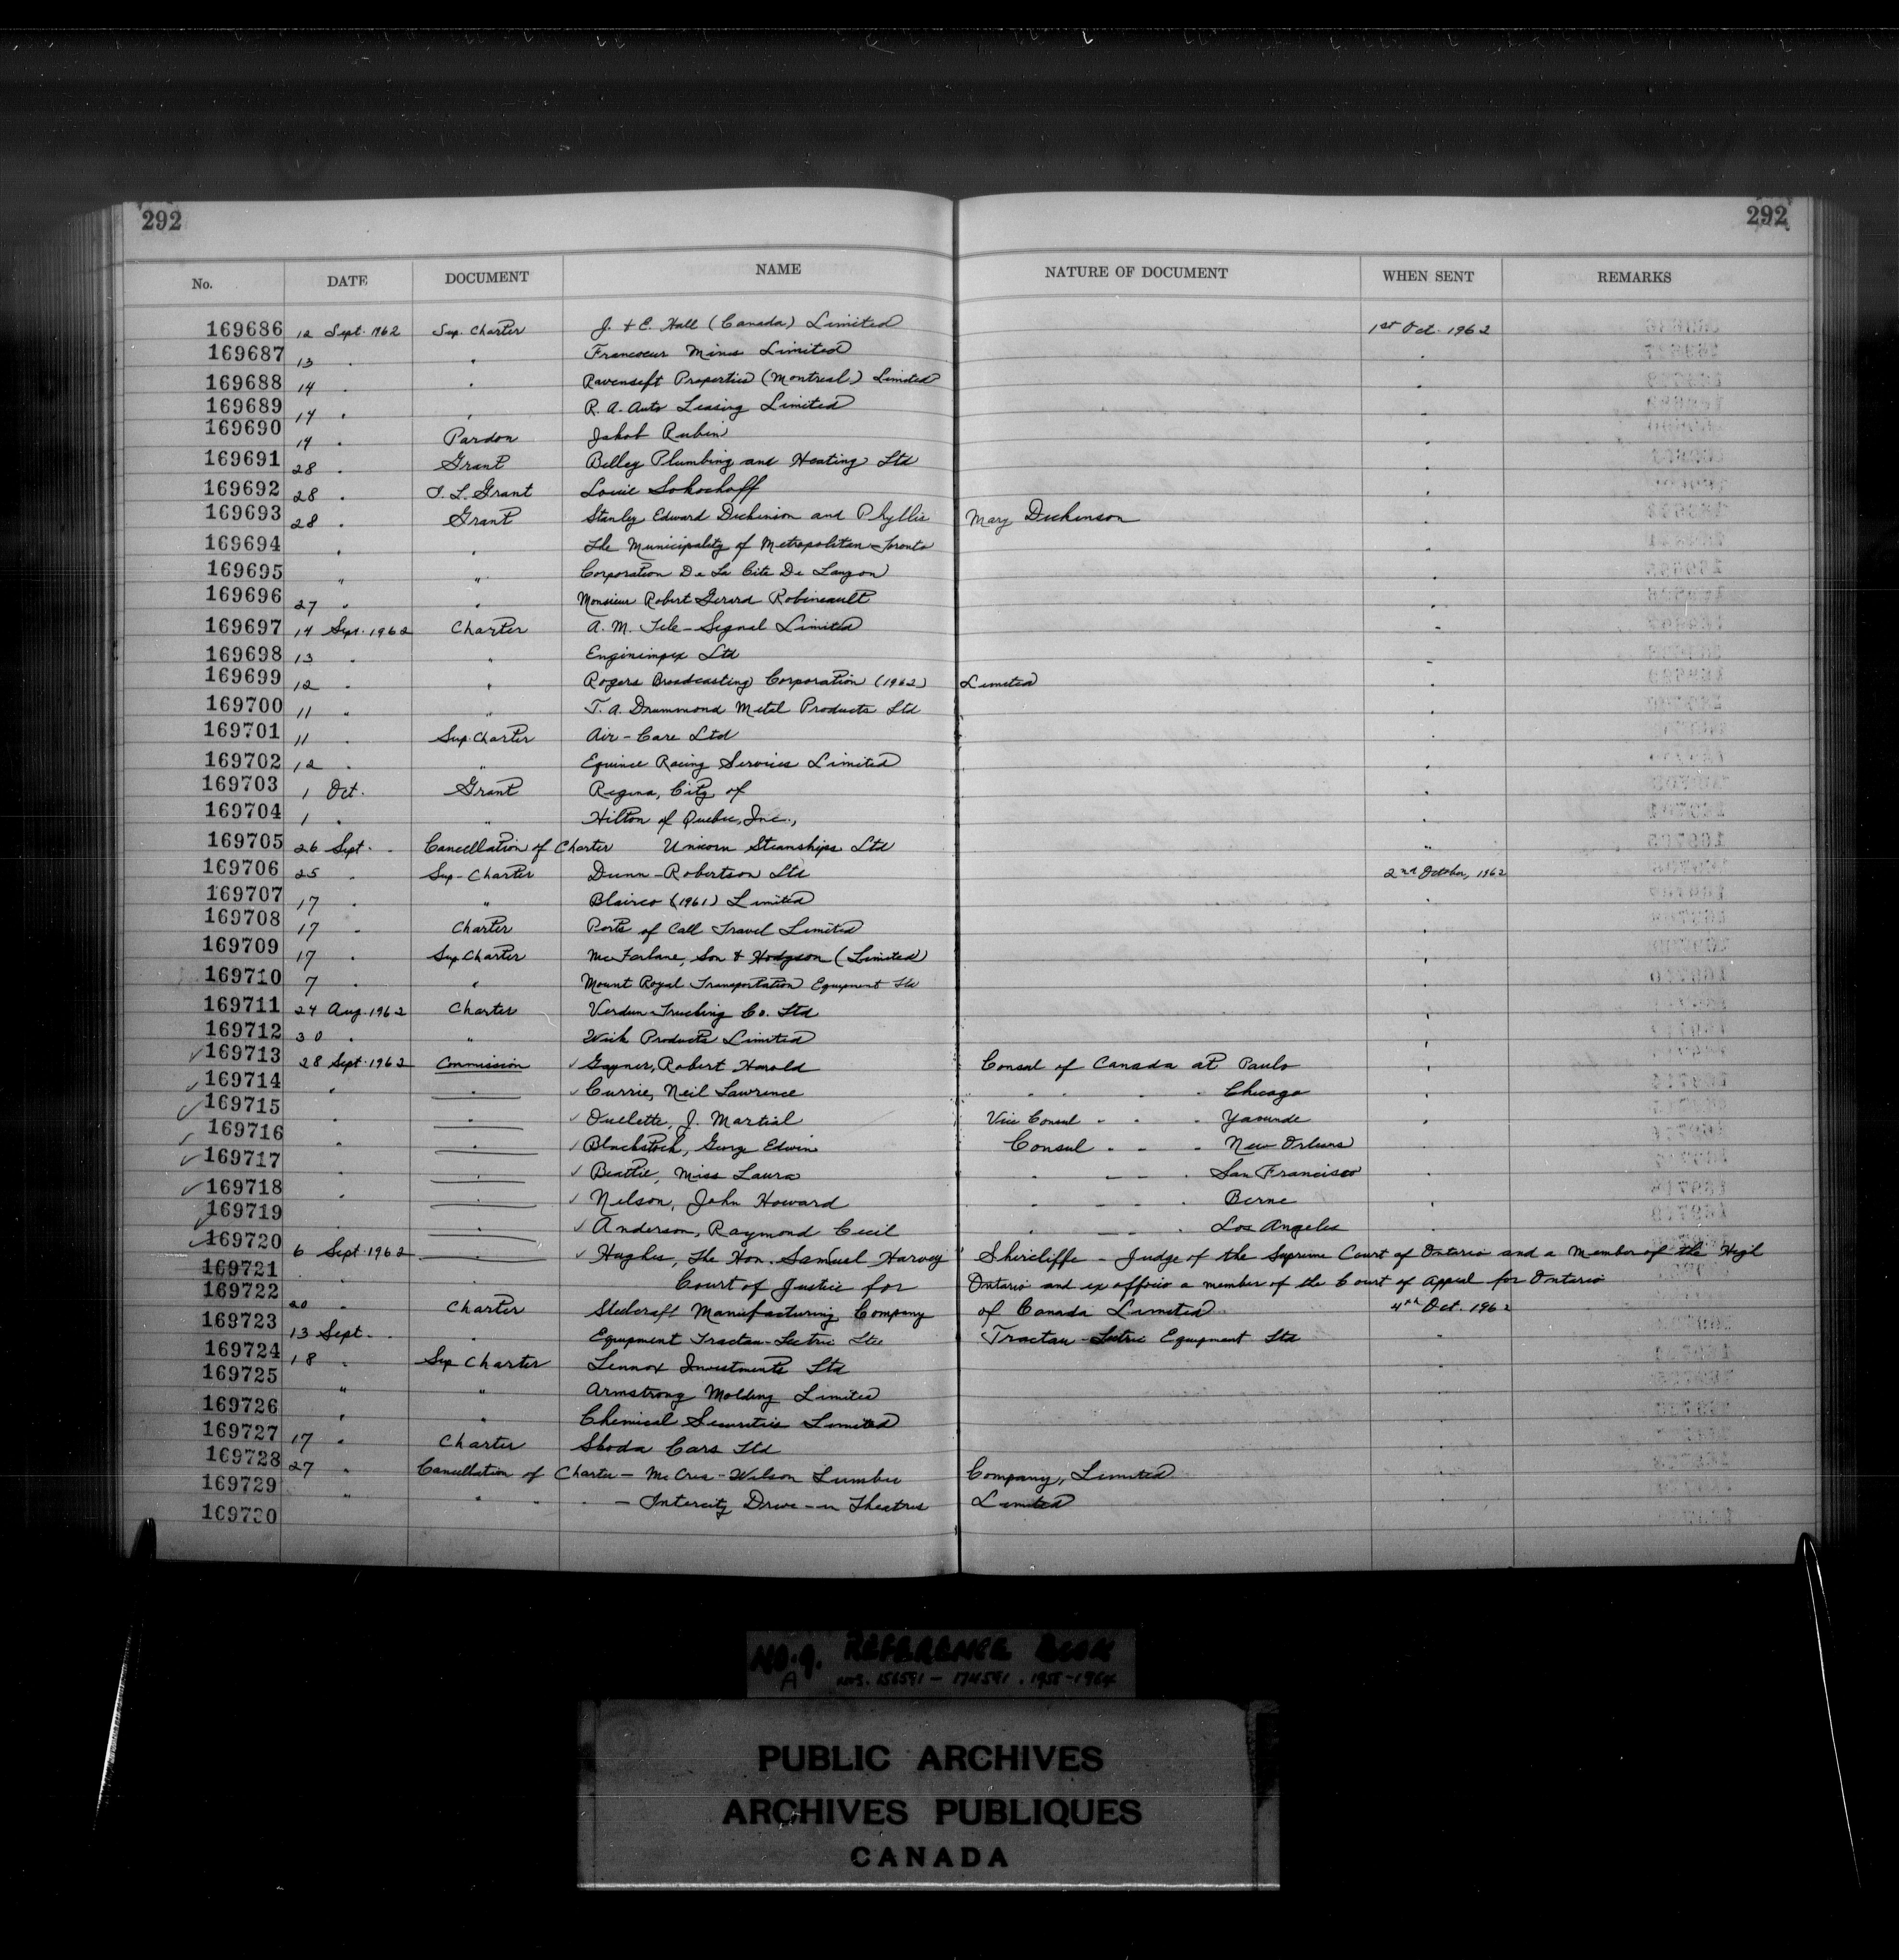 292 292
No. DATE DOCUMENT NAME NATURE OF DOCUMENT WHEN SENT REMARKS
169686 12 Sept. 1962 Sup. Charter J. & E. Hall (Canada) Limited 1st Oct. 1962
169687 13 . . Francoeur Mines Limited .
169688 14 . . Ravenseft Properties (Montreal) Limited .
169689 14 . . R. A. Auto Leasing Limited .
169690 14 . Pardon Jakob Rubin .
169691 28 . Grant Belley Plumbing and Heating Ltd .
169692 28 . S. L. Grant Louie Sokochoff .
169693 28 . Grant Stanley Edward Dickinson and Phyllis Mary Dickenson .
169694 " . The Municipality of Metropolitan Toronto .
169695 " " Corporation De La Cite De Lauzon .
169696 27 . . Monsieur Robert Gerard Robineault .
169697 14 Sept. 1962 Charter A. M. Tele-Signal Limited "
169698 13 . . Enginimpex Ltd .
169699 12 . . Rogers Broadcasting Corporation (1962) Limited .
169700 11 " " T. A. Drummond Metal Products Ltd .
169701 11 . Sup. Charter Air-Care Ltd .
169702 12 . " Equine Racing Services Limited .
169703 1 Oct. Grant Regina, City of .
169704 1 . " Hilton of Quebec, Inc., .
169705 26 Sept. Cancellation of Charter Unicorn Steamships Ltd "
169706 25 . Sup-Charter Dunn-Robertson Ltd 2nd October, 1962
169707 17 . " Blairco (1961) Limited .
169708 17 . Charter Ports of Call Travel Limited .
169709 17 . Sup Charter McFarlane, Son & Hodgson (Limited) .
169710 7 . " Mount Royal Transportation Equipment Ltd .
169711 24 Aug. 1962 Charter Verdun Trucking Co. Ltd .
169712 30 . " Products Limited .
✓169713 28 Sept. 1962 Commission ✓ Gayner, Robert Harold Consul of Canada at Paulo .
✓169714 " . ✓ Currie, Neil Lawrence . . . . Chicago .
✓169715 . . ✓ Ouellette, J. Martial Vice Consul . . . Yaounde .
✓169716 " . ✓ Blackstock, George Edwin Consul . . . New Orleans
✓169717 . . ✓ Beattie, Miss Laura . . . . San Francisco .
✓169718 . . ✓ Nelson, John Howard . . . . Berne .
✓169719 . . ✓ Anderson, Raymond Cecil . . . Los Angeles .
✓169720 6 Sept. 1962 . ✓ Hughes, The Hon. Samuel Harvey Shircliffe - Judge of the Supreme Court of Ontario and a Member of the High
169721 . . Court of Justice for Ontario and ex officio a member of the Court of Appeal for Ontario
169722 20 " Charter Steelcraft Manufacturing Company of Canada Limited 4th Oct. 1962
169723 13 Sept. . Equipment Tractau-Lectric Ltee Tractau-Lectric Equipment Ltd "
169724 18 . Sup Charter Lennox Investments Ltd .
169725 " " Armstrong Molding Limited .
169726 " " Chemical Securities Limited .
169727 17 . Charter Skoda Cars Ltd .
169728 27 . Cancellation of Charter - McCrea-Wilson Lumber Company, Limited .
169729 " " . . - Intercity Drive-in Theatres Limited .
169730
NO. 9. REFERENCE BOOK
A NOS. 156591 - 174591 . 1958-1964
PUBLIC ARCHIVES
ARCHIVES PUBLIQUES
CANADA